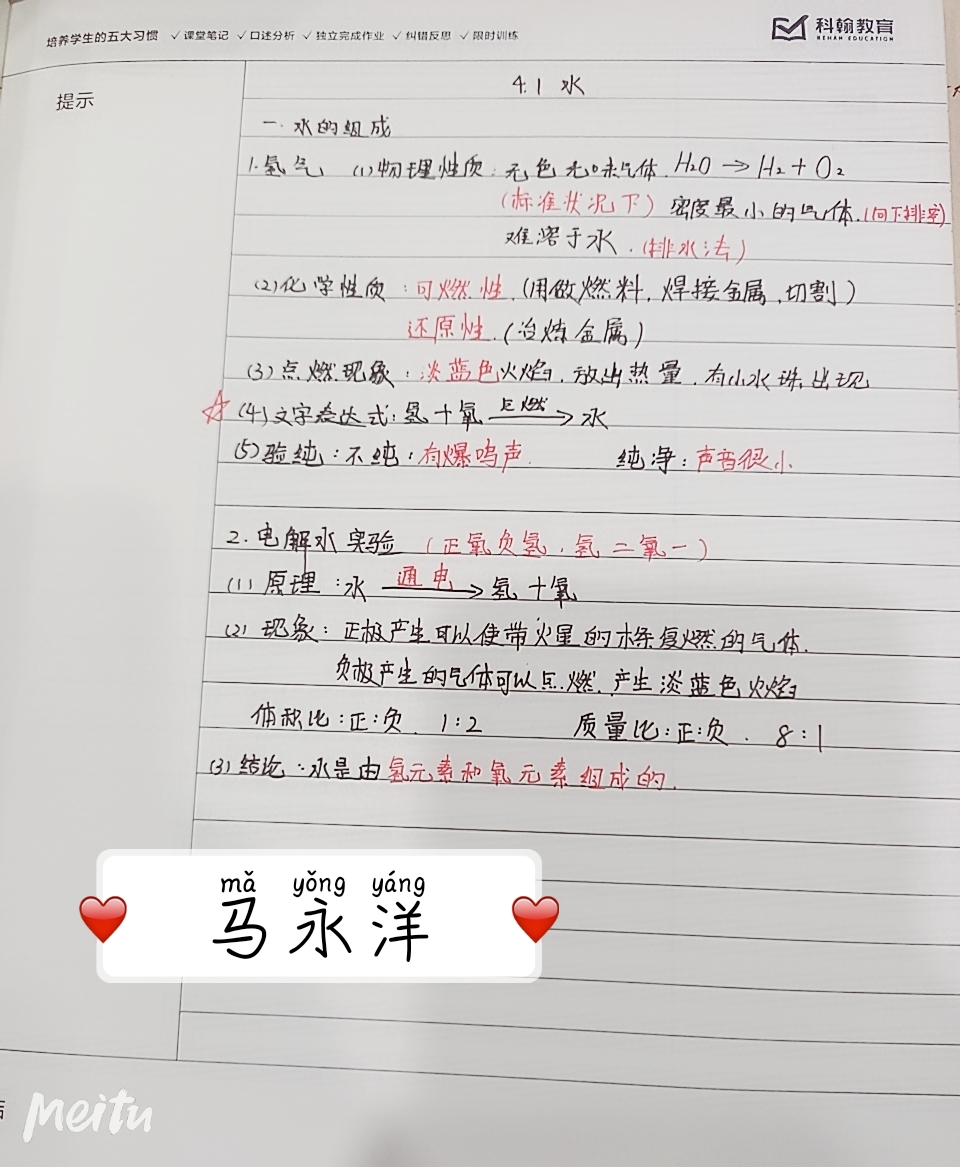 培养学生的五大习惯 ✓课堂笔记 ✓口述分析 ✓独立完成作业 ✓纠错反思 ✓限时训练
科翰教育
KEHAN EDUCATION
提示
4.1 水
一.水的组成
1.氢气 (1)物理性质:无色无味气体. H₂O → H₂ + O₂
(标准状况下) 密度最小的气体.(向下排空)
难溶于水.(排水法)
(2)化学性质:可燃性.(用做燃料,焊接金属,切割)
还原性.(冶炼金属)
(3)点燃现象:淡蓝色火焰,放出热量,有小水珠出现
☆(4)文字表达式:氢+氧 —点燃→ 水
(5)验纯:不纯:有爆鸣声. 纯净:声音很小.
2.电解水实验 (正氧负氢,氢二氧一)
(1)原理:水 —通电→ 氢+氧
(2)现象:正极产生可以使带火星的木条复燃的气体.
负极产生的气体可以点燃.产生淡蓝色火焰
体积比:正:负. 1:2 质量比:正:负. 8:1
(3)结论:水是由氢元素和氧元素组成的.
mǎ yǒng yáng
马永洋
Meitu